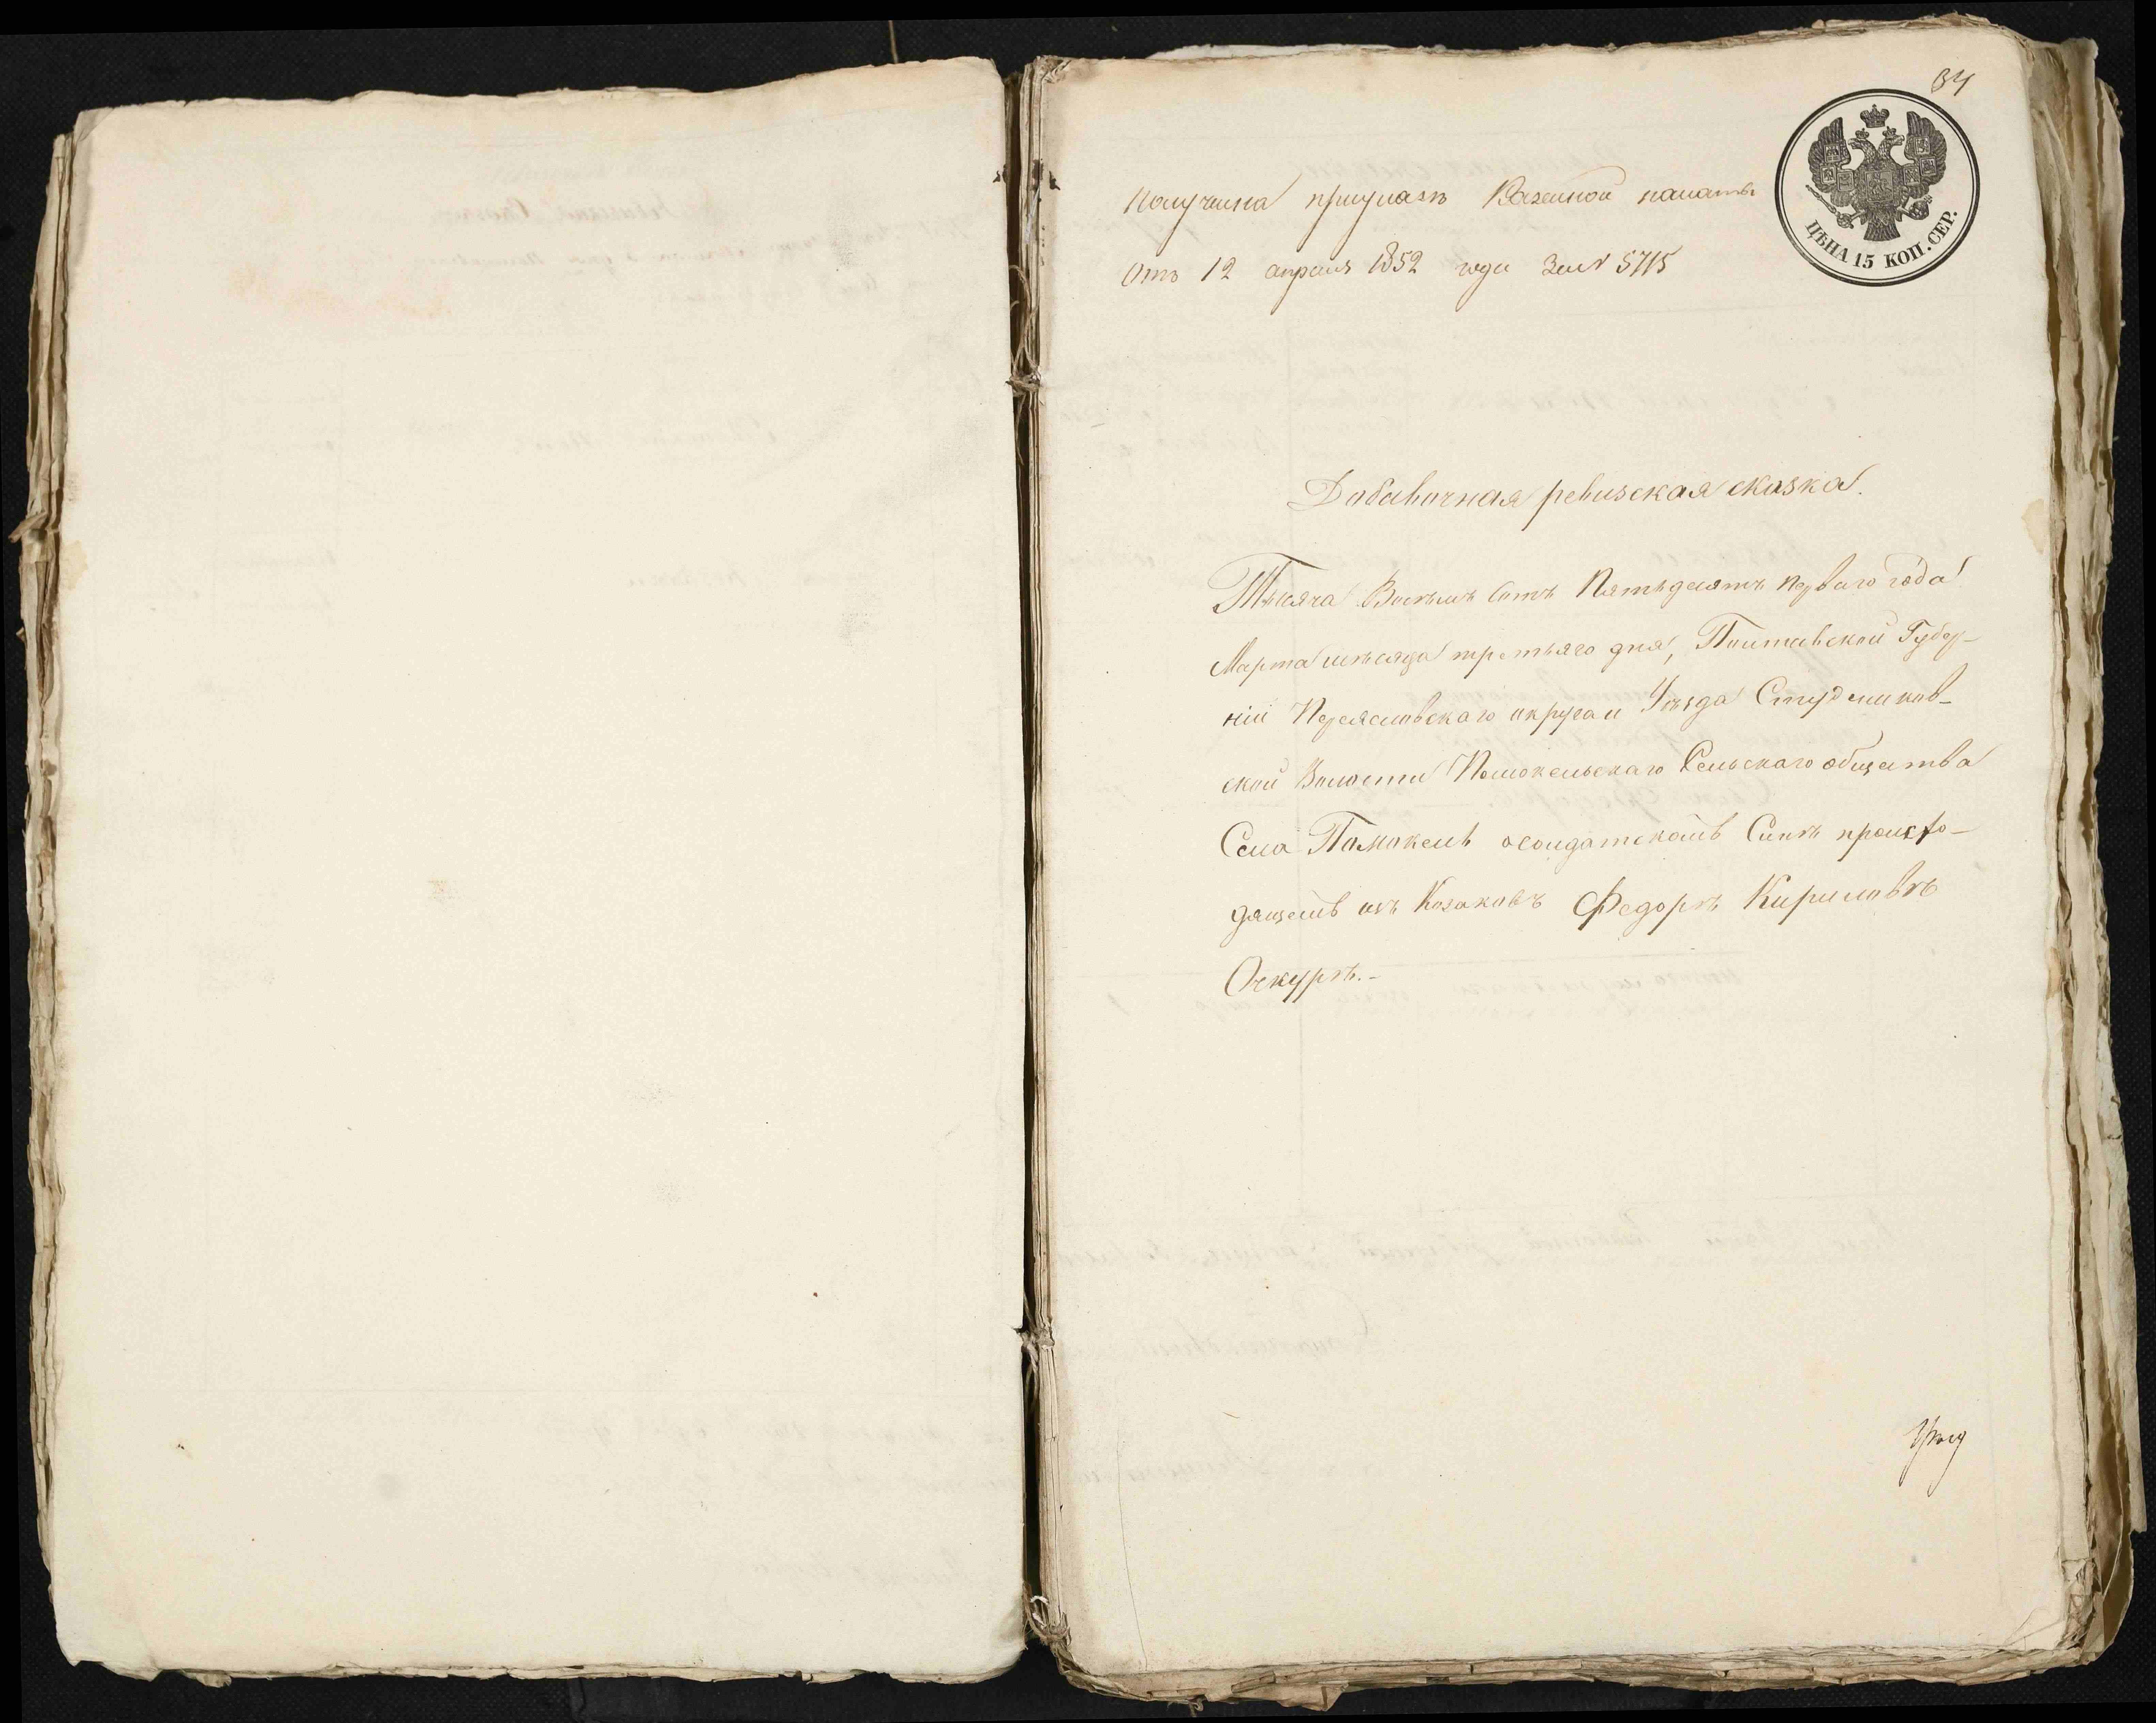 84
ЦѢНА 15 КОП. СЕР.
Получена приуказѣ Казенной палаты
Отъ 12 апреля 1852 года За № 5715
Добавочная ревизская сказка.
Тысяча Восемь Сотъ Пятьдесятъ Перваго года
Марта месяца третьяго дня, Полтавской Губер-
ніи Переяславскаго округа и Уезда Студеников-
ской Волости Помокельскаго Сельскаго общества
Села Помокель осолдатскомъ Сине происхо-
дящемъ изъ Козаковъ Федорѣ Кириловѣ
Очкурѣ.-